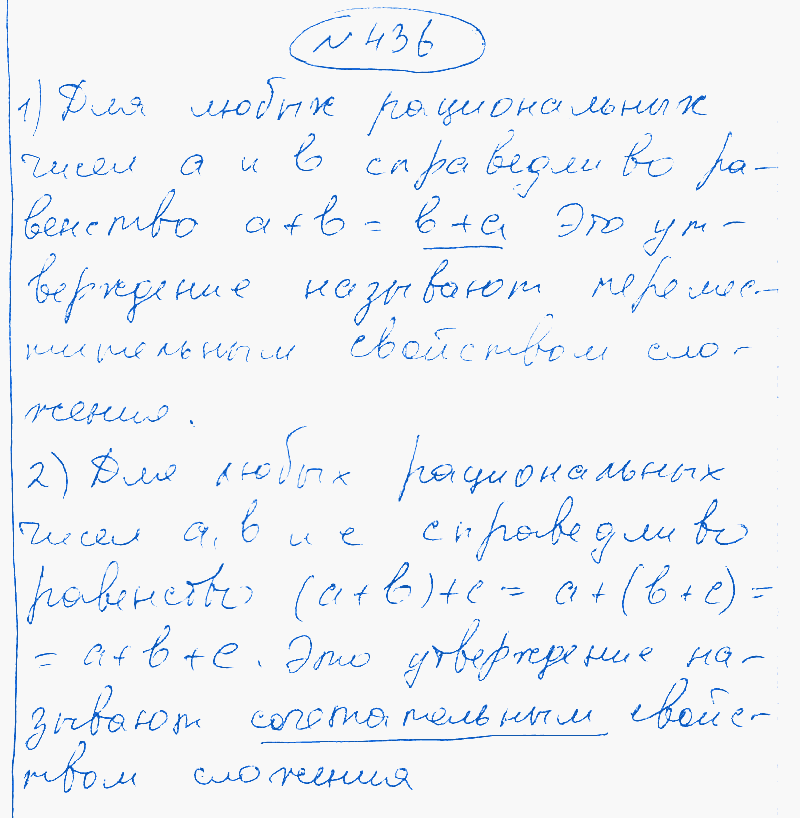 № 436
1) Для любых рациональных
чисел a и b справедливо ра-
венство a+b = b+a. Это ут-
верждение называют перемес-
тительным свойством сло-
жения.
2) Для любых рациональных
чисел a, b и c справедливо
равенство (a+b)+c = a+(b+c) =
= a+b+c. Это утверждение на-
зывают сочетательным свойс-
твом сложения